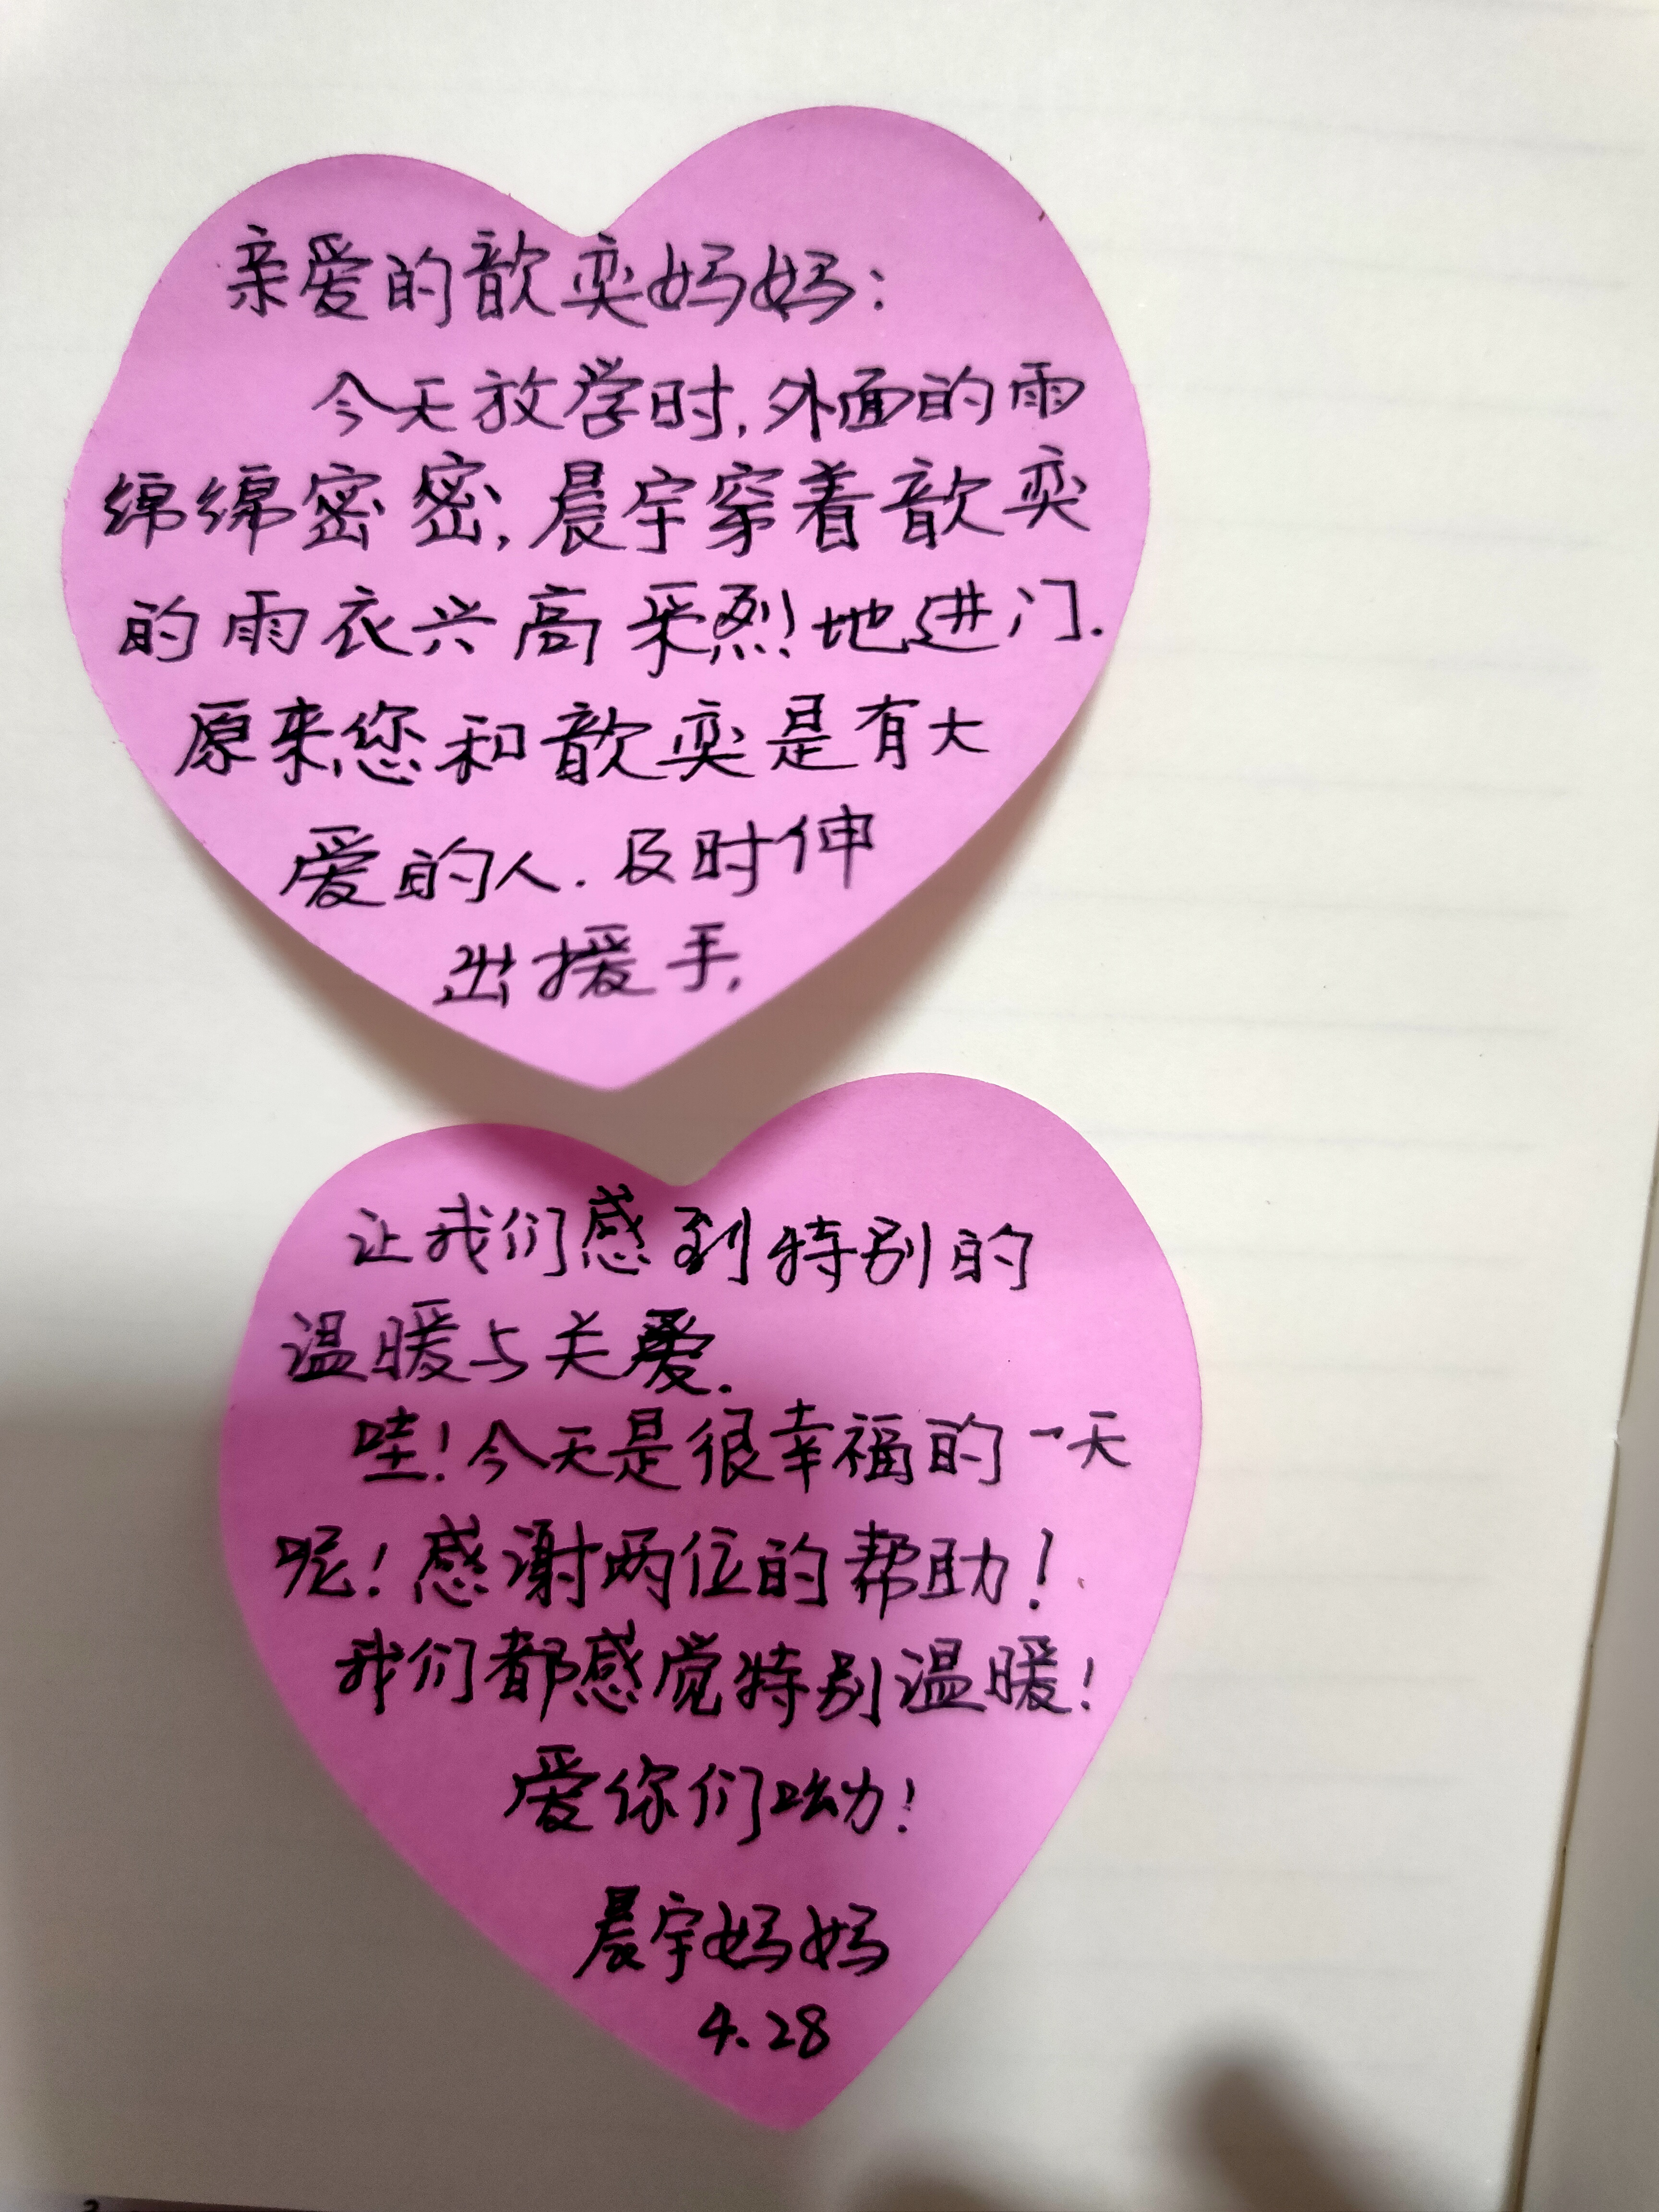 亲爱的歆奕妈妈：
今天放学时，外面的雨
绵绵密密，晨宇穿着歆奕
的雨衣兴高采烈地进门.
原来您和歆奕是有大
爱的人.及时伸
出援手，
让我们感到特别的
温暖与关爱.
哇！今天是很幸福的一天
呢！感谢两位的帮助！
我们都感觉特别温暖！
爱你们呦！
晨宇妈妈
4.28